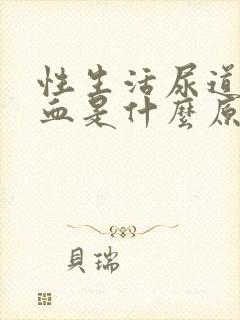 性生活尿道
血是什麼原
貝瑞